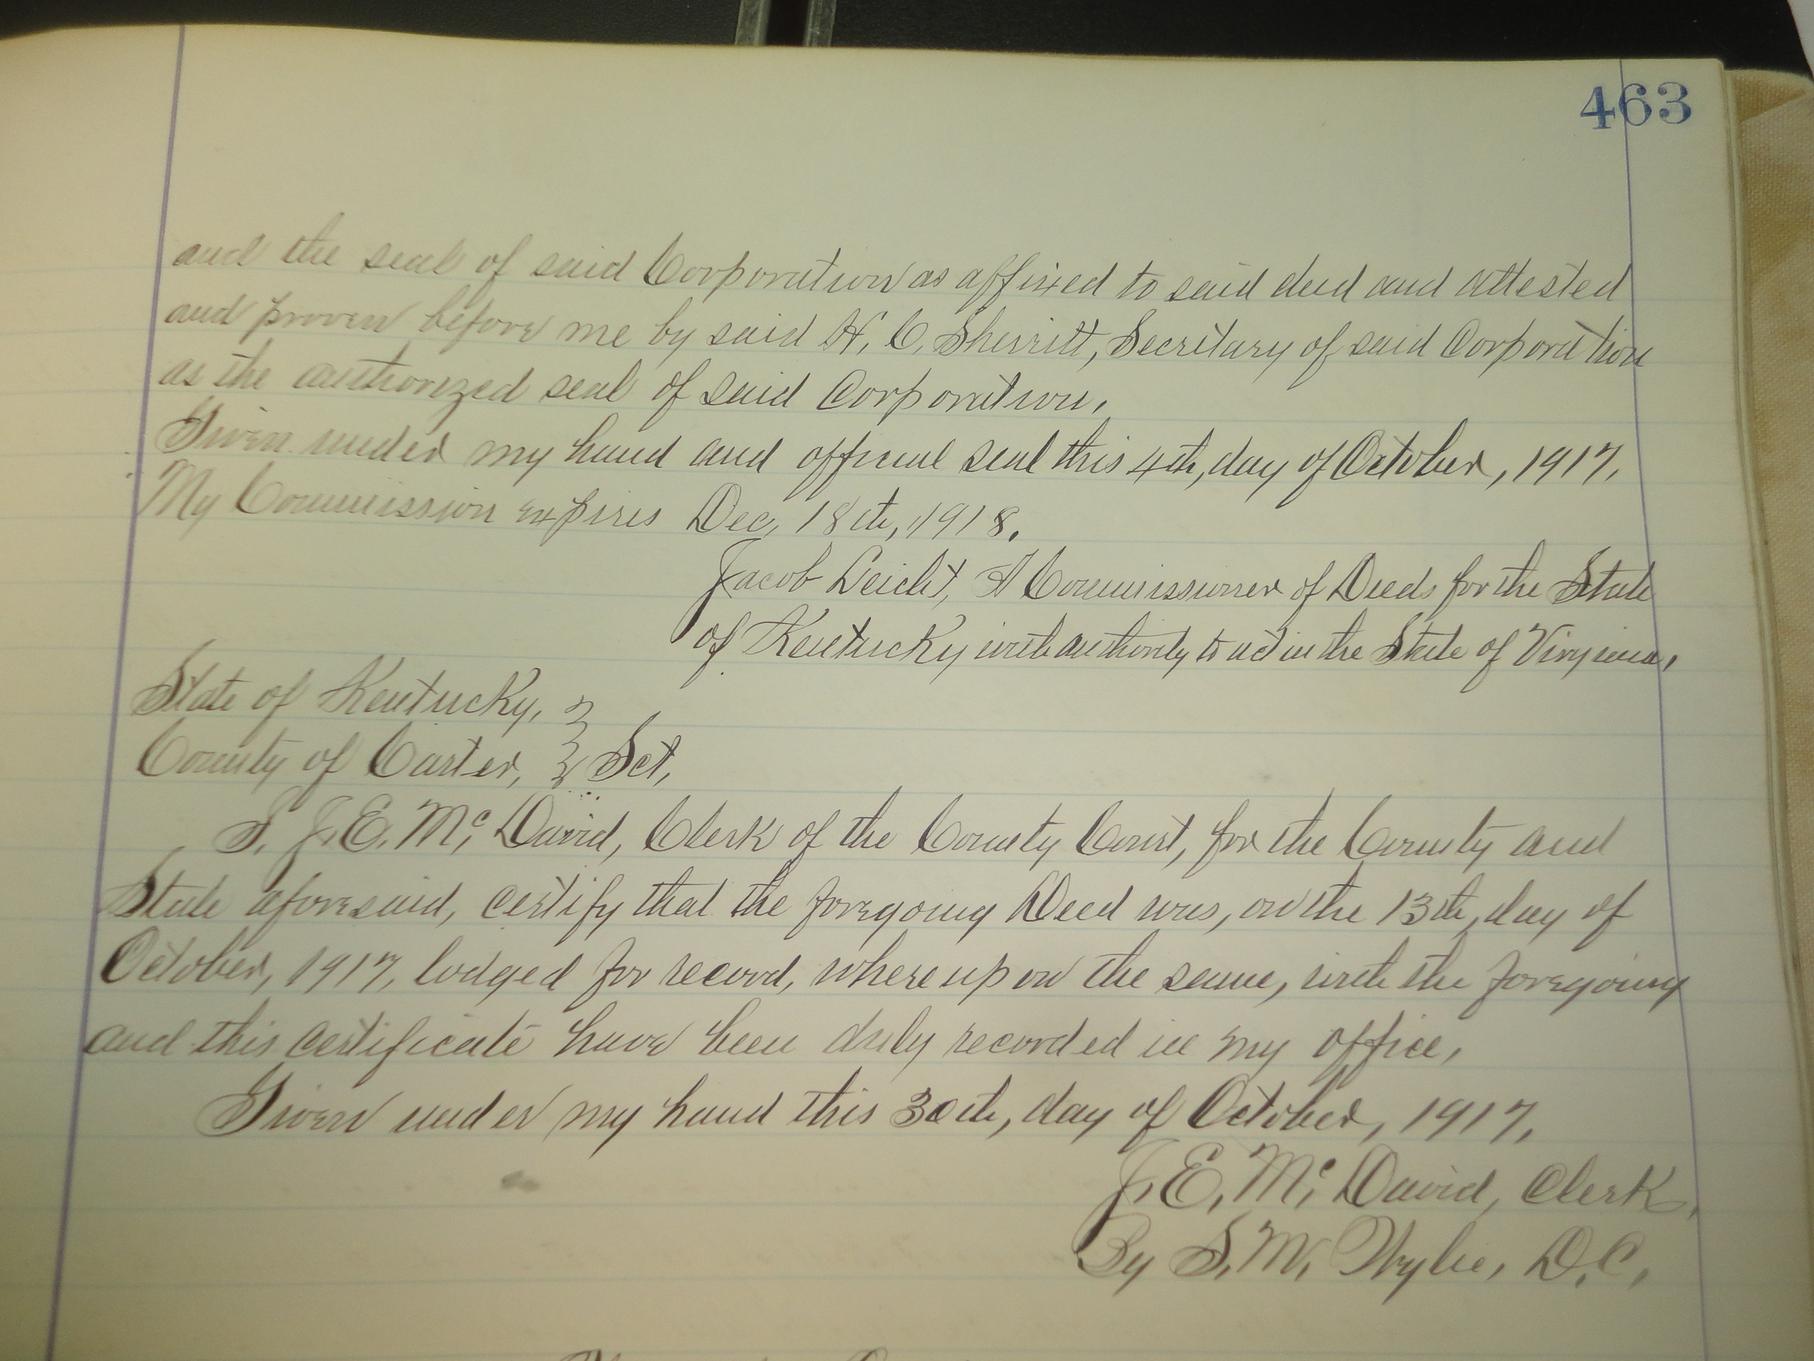 463
and the seal of said Corporation as affixed to said deed and attested
and proven before me by said H. C. Sherritt, Secretary of said Corporation
as the authorized seal of said Corporation.
Given under my hand and official seal this 4th, day of October, 1917.
My Commission expires Dec, 18th, 1918.
Jacob Leicht, A Commissioner of Deeds for the State
of Kentucky with authority to act in the State of Virginia.
State of Kentucky,
County of Carter, } Sct,
I, J. E. Mc David, Clerk of the County Court, for the County and
State aforesaid, certify that the foregoing Deed was, on the 13th, day of
October, 1917, lodged for record, whereupon the same, with the foregoing
and this certificate have been duly recorded in my office,
Given under my hand this 30th, day of October, 1917,
J. E. Mc David, Clerk,
By S. M. Wylie, D. C,